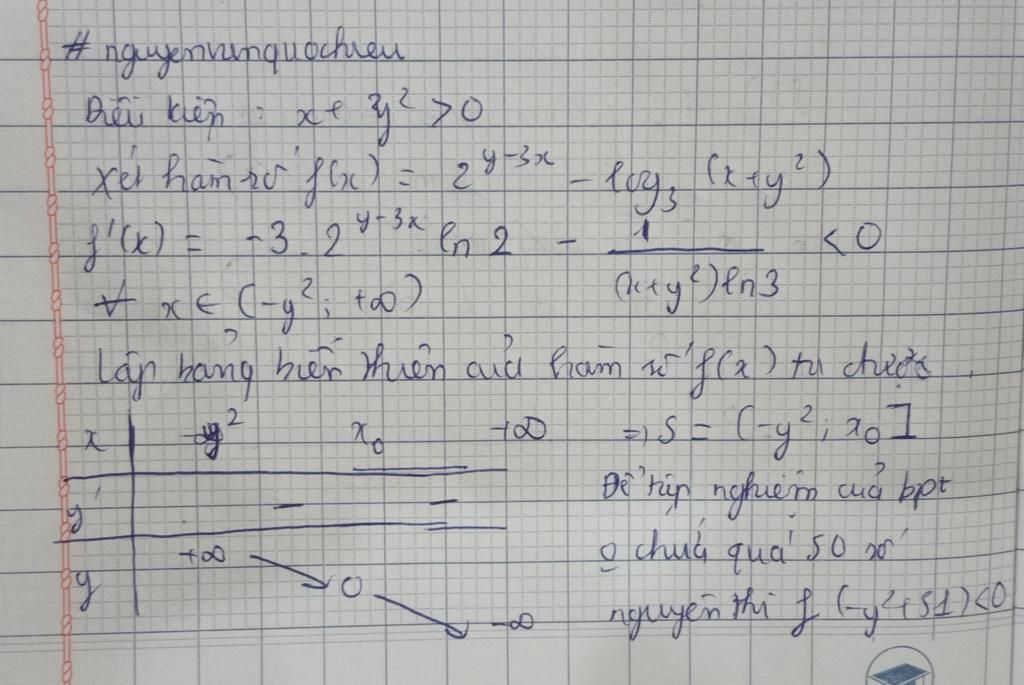 # nguyenvanquochieu
Điều kiện : x + y² > 0
Xét hàm số f(x) = 2^{y-3x} - log₃ (x+y²)
f'(x) = -3.2^{y-3x} ln 2 - 1/((x+y²)ln3) < 0
∀ x ∈ (-y²; +∞)
Lập bảng biến thiên của hàm số f(x) ta được
x -y² x₀ +∞ => S = (-y²; x₀]
y' - - Để tập nghiệm của bpt
+∞ o chứa quá 50 số
y 0 -∞ nguyên thì f (-y²+51)<0